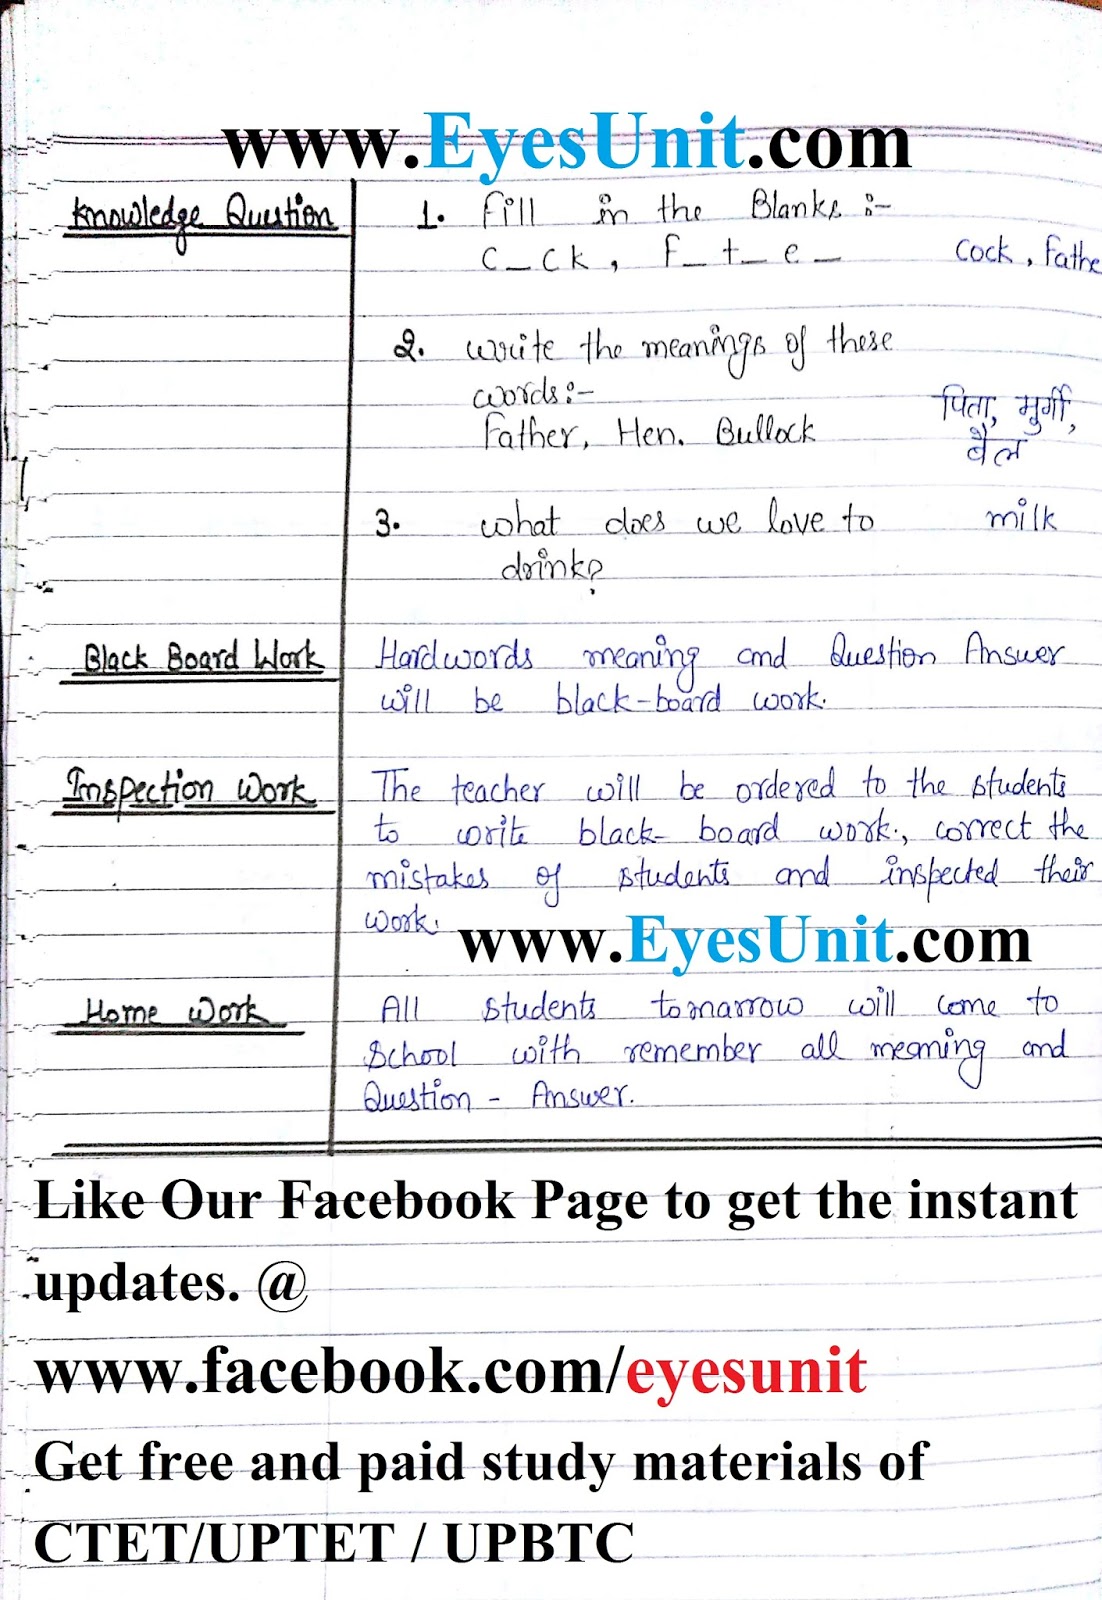 www.EyesUnit.com
Knowledge Question
1. Fill in the Blanks :-
C_ck, F_t_e_ Cock, Fathe
2. write the meanings of these
words:-
Father, Hen. Bullock
पिता, मुर्गी,
बैल
3. what does we love to milk
drink?
Black Board Work
Hardwords meaning and Question Answer
will be black-board work.
Inspection Work
The teacher will be ordered to the students
to write black- board work., correct the
mistakes of students and inspected their
work.
www.EyesUnit.com
Home Work
All students tomarrow will come to
School with remember all meaning and
Question - Answer.
Like Our Facebook Page to get the instant
updates. @
www.facebook.com/eyesunit
Get free and paid study materials of
CTET/UPTET / UPBTC